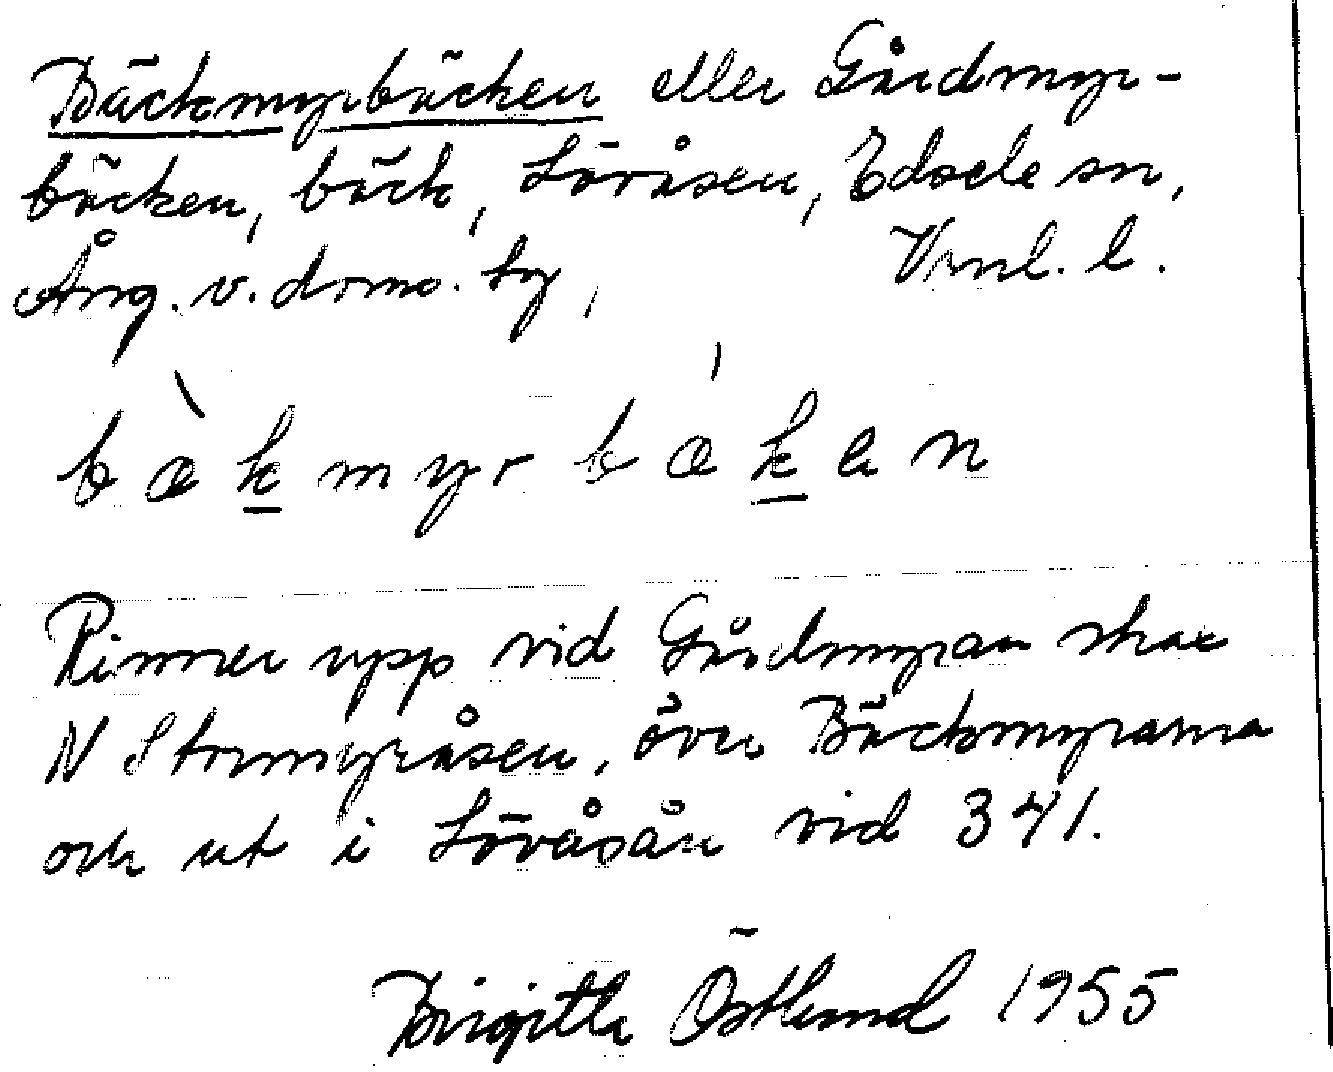 Bäckmyrbäcken eller Gårdmyr-
bäcken, bäck, Lövåsen, Edsele sn,
Ång. v. doms. lg, Vrnl. l.
bækmyrbækan
Rinner upp vid Gårdmyran strax
N Stormyråsen, över Bäckmyrarna
och ut i Lövåsån vid 341.
Birgitta Östlund 1955